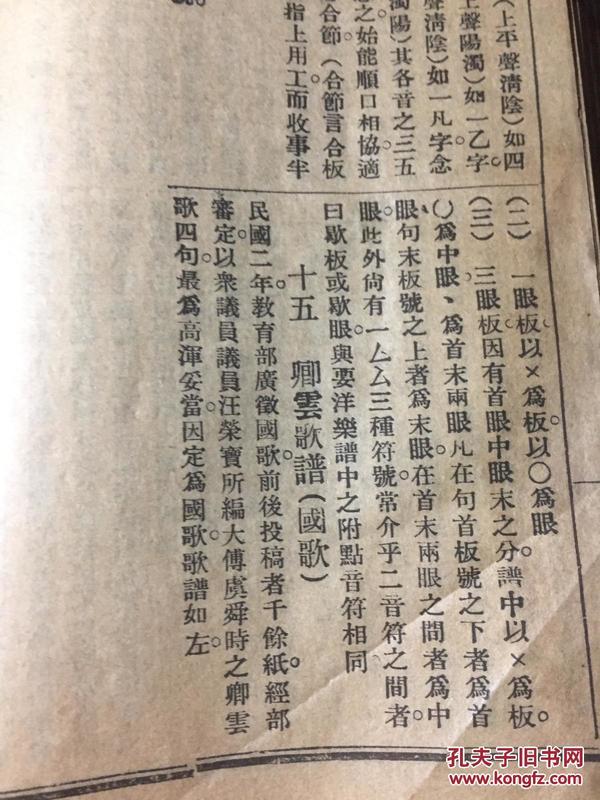 （上平聲清陰）如四
上聲陽濁）如一乙字
聲清陰）如一凡字念
濁陽）其各音之三五
之始能順口相協適
合節。（合節言合板
指上用工而收事半
（二）　一眼板。以×爲板。以〇爲眼。
（三）　三眼板因有首眼中眼末之分。譜中以×爲板。
〇爲中眼、爲首末兩眼凡在句首板號之下者爲首
眼句末板號之上者爲末眼。在首末兩眼之間者爲中
眼。此外尙有一厶厶三種符號。常介乎二音符之間者。
曰歇板或歇眼。與要洋樂譜中之附點音符相同
十五　卿雲歌譜（國歌）
民國二年。教育部廣徵國歌。前後投稿者千餘紙。經部
審定。以衆議員議員汪榮寶所編大傅虞舜時之卿雲
歌四句。最爲高渾妥當。因定爲國歌。歌譜如左
孔夫子旧书网
www.kongfz.com